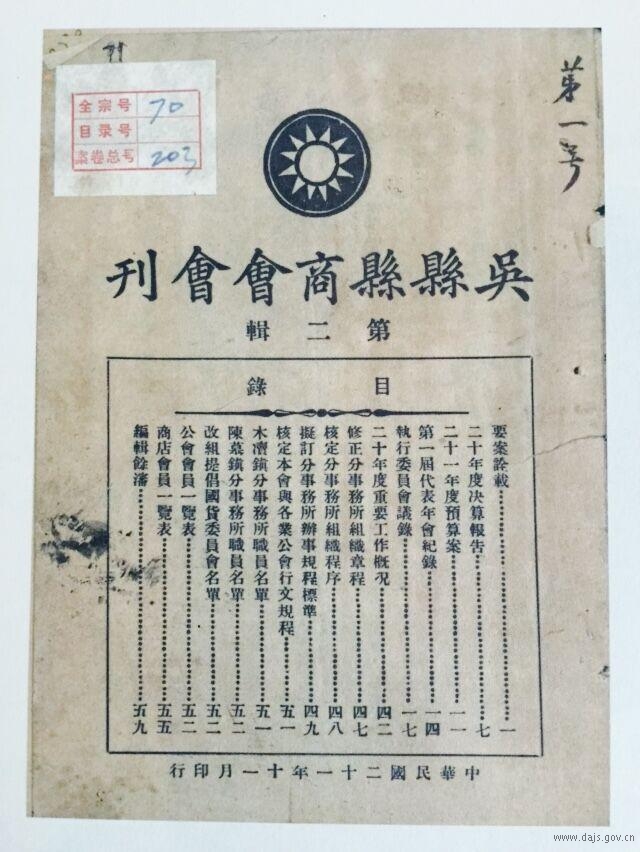 第一号
全宗号 70
目录号
案卷总号 203
吳縣縣商會會刊
第二輯
目錄
要案詮載 一
二十年度决算報告 七
二十一年度預算案 一一
第一屆代表年會紀錄 一四
執行委員會議錄 一七
二十年度重要工作槪況 四二
修正分事務所組織章程 四七
核定分事務所組織程序 四八
擬訂分事務所辦事規程標準 四九
核定本會與各業公會行文規程 五一
木瀆鎭分事務所職員名單 五一
陳墓鎭分事務所職員名單 五二
改組提倡國貨委員會名單 五二
公會會員一覽表 五二
商店會員一覽表 五五
編輯餘瀋 五九
中華民國二十一年十一月印行
www.dajs.gov.cn